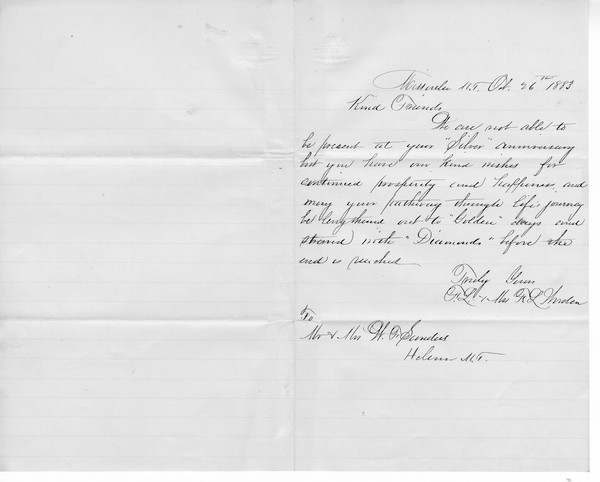 Missoula M.T. Oct. 26th 1883
Kind Friends
We are not able to
be present at your "Silver" anniversary
but you have our kind wishes for
continued prosperity and happiness and
may your pathway through life's journey
be lengthened out to "Golden" days and
strewed with "Diamonds" before the
end is reached
Truly Yours
& Mrs Worden
To
Mr & Mrs W. F. Sanders
Helena M.T.